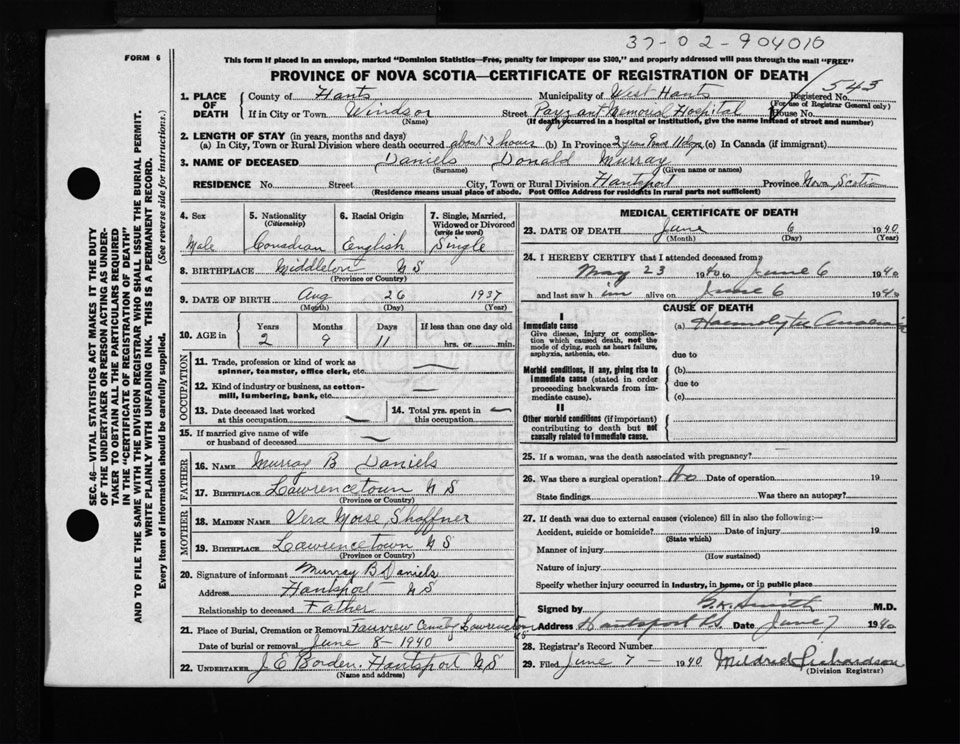 37-02-904010
FORM 6
This form if placed in an envelope, marked "Dominion Statistics—Free, penalty for improper use $300," and properly addressed will pass through the mail "FREE"
PROVINCE OF NOVA SCOTIA—CERTIFICATE OF REGISTRATION OF DEATH
543
SEC. 46—VITAL STATISTICS ACT MAKES IT THE DUTY
OF THE UNDERTAKER OR PERSON ACTING AS UNDER-
TAKER TO OBTAIN ALL THE PARTICULARS REQUIRED
IN THE "CERTIFICATE OF REGISTRATION OF DEATH"
AND TO FILE THE SAME WITH THE DIVISION REGISTRAR WHO SHALL ISSUE THE BURIAL PERMIT.
WRITE PLAINLY WITH UNFADING INK. THIS IS A PERMANENT RECORD.
Every item of information should be carefully supplied. (See reverse side for instructions.)
1. PLACE OF DEATH County of Hants Municipality of West Hants Registered No.
(For use of Registrar General only)
If in City or Town Windsor Street Payzant Memorial Hospital House No.
(Name) (If death occurred in a hospital or institution, give the name instead of street and number)
2. LENGTH OF STAY (in years, months and days)
(a) In City, Town or Rural Division where death occurred about 2 hours (b) In Province 2 years 9 mos 11 days (c) In Canada (if immigrant)
3. NAME OF DECEASED Daniels Donald Murray
(Surname) (Given name or names)
RESIDENCE No. Street City, Town or Rural Division Hantsport Province Nova Scotia
(Residence means usual place of abode. Post Office Address for Residents in rural parts not sufficient)
4. Sex
Male
5. Nationality
(Citizenship)
Canadian
6. Racial Origin
English
7. Single, Married,
Widowed or Divorced
(write the word)
Single
8. BIRTHPLACE Middleton N S
(Province or Country)
9. DATE OF BIRTH Aug 26 1937
(Month) (Day) (Year)
10. AGE in Years Months Days If less than one day old
2 9 11 hrs. or min.
OCCUPATION
11. Trade, profession or kind of work as
spinner, teamster, office clerk, etc. —
12. Kind of industry or business, as cotton-
mill, lumbering, bank, etc. —
13. Date deceased last worked
at this occupation —
14. Total yrs. spent in
this occupation —
15. If married give name of wife
or husband of deceased —
FATHER
16. NAME Murray B Daniels
17. BIRTHPLACE Lawrencetown N S
(Province or Country)
MOTHER
18. MAIDEN NAME Vera Shaffner
19. BIRTHPLACE Lawrencetown N S
(Province or Country)
20. Signature of informant Murray B Daniels
Address Hantsport N S
Relationship to deceased Father
21. Place of Burial, Cremation or Removal Fairview Lawrencetown N S
Date of burial or removal June 8 - 1940
22. UNDERTAKER J E Borden. Hantsport N S
(Name and address)
MEDICAL CERTIFICATE OF DEATH
23. DATE OF DEATH June 6 1940
(Month) (Day) (Year)
24. I HEREBY CERTIFY that I attended deceased from
May 23 1940 to June 6 1940
and last saw him alive on June 6 1940
CAUSE OF DEATH
I
Immediate cause
Give disease, injury or complica-
tion which caused death, not the
mode of dying, such as heart failure,
asphyxia, asthenia, etc.
(a) Haemolytic Anaemia
due to
Morbid conditions, if any, giving rise to
immediate cause (stated in order
proceeding backwards from im-
mediate cause).
(b)
due to
(c)
II
Other morbid conditions (if important)
contributing to death but not
causally related to immediate cause.
25. If a woman, was the death associated with pregnancy?
26. Was there a surgical operation? No Date of operation 19
State findings Was there an autopsy?
27. If death was due to external causes (violence) fill in also the following:—
Accident, suicide or homicide? Date of injury 19
(State which)
Manner of injury
(How sustained)
Nature of injury
Specify whether injury occurred in industry, in home, or in public place
Signed by Smith M.D.
Address Hantsport N.S. Date June 7 1940
28. Registrar's Record Number
29. Filed June 7 — 1940 Mildred Richardson
(Division Registrar)